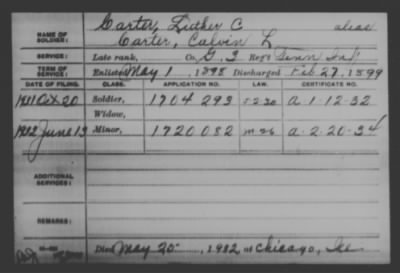 NAME OF SOLDIER: Carter, Luther C. alias
Carter, Calvin L
SERVICE: Late rank, Co. G. 3 Reg't Tenn Inf
TERM OF SERVICE: Enlisted May 1, 1898 Discharged Feb 27, 1899
DATE OF FILING. CLASS. APPLICATION NO. LAW. CERTIFICATE NO.
1911 Oct 20 Soldier, 1704 293 a 1 12-32
Widow,
1912 June 13 Minor, 1720 082 m 26 a. 2.20-34
ADDITIONAL SERVICES:
REMARKS:
Died May 25, 1912 at Chicago, Ill